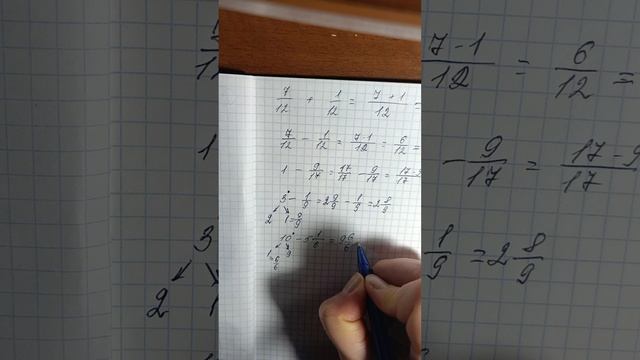 7/12 + 1/12 = 7+1/12 =
7/12 - 1/12 = 7-1/12 = 6/12 =
1 - 9/17 = 17/17 - 9/17 = 17-9/17
3 - 1/9 = 2 9/9 - 1/9 = 2 8/9
2 1 = 9/9
10 - 5 1/6 = 9 6/6
1 = 6/6 9
7-1/12 = 6/12 =
- 9/17 = 17-9/17
1/9 = 2 8/9
3
2